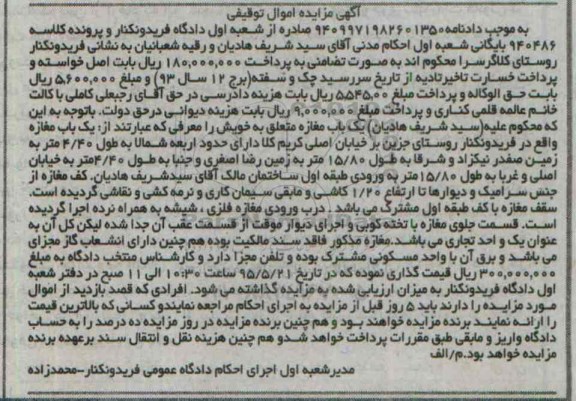 آگهی مزایده اموال توقیفی
به موجب دادنامه ۹۴۰۹۹۷۱۹۸۲۶۰۱۳۵۰ صادره از شعبه اول دادگاه فریدونکنار و پرونده کلاسه
۹۴۰۴۸۶ بایگانی شعبه اول احکام مدنی آقای سید شریف هادیان و رقیه شعبانیان به نشانی فریدونکنار
روستای کلاگرسرا محکوم اند به صورت تضامنی به پرداخت ۱۸۰,۰۰۰,۰۰۰ ریال بابت اصل خواسته و
پرداخت خسارت تاخیرتادیه از تاریخ سررسید چک و سفته(برج ۱۲ سال ۹۳) و مبلغ ۵,۶۰۰,۰۰۰ ریال
بابت حق الوکاله و پرداخت مبلغ ۵۵۴۵,۰۰ ریال بابت هزینه دادرسی در حق آقای رجبعلی کاملی با کالت
خانم عالمه قلمی کناری و پرداخت مبلغ ۹,۰۰۰,۰۰۰ ریال بابت هزینه دیوانی درحق دولت. باتوجه به این
که محکوم علیه(سید شریف هادیان) یک باب مغازه متعلق به خویش را معرفی که عبارتند از: یک باب مغازه
واقع در فریدونکنار روستای جزین بر خیابان اصلی کریم کلا دارای حدود اربعه شمالا به طول ۴/۴۰ متر به
زمین صفدر نیکزاد و شرقا به طول ۱۵/۸۰ متر به زمین رضا اصغری و جنبا به طول ۴/۴۰متر به خیابان
اصلی و غربا به طول ۱۵/۸۰ متر به ورودی طبقه اول ساختمان مالک آقای سیدشریف هادیان. کف مغازه از
جنس سرامیک و دیوارها تا ارتفاع ۱/۲۰ کاشی و مابقی سیمان کاری و نرمه کشی و نقاشی گردیده است.
سقف مغازه با کف طبقه اول مشترک می باشد . درب ورودی مغازه فلزی ، شیشه به همراه نرده اجرا گردیده
است. قسمت جلوی مغازه با تخته کوبی و اجرای دیوار موقت از قسمت عقب آن جدا شده لیکن کل آن به
عنوان یک و احد تجاری می باشد.مغازه مذکور فاقد سند مالکیت بوده هم چنین دارای انشعاب گاز مجزای
می باشد و برق آن با واحد مسکونی مشترک بوده و تلفن مجزا دارد و کارشناس منتخب دادگاه به مبلغ
۳۰۰,۰۰۰,۰۰۰ ریال قیمت گذاری نموده که در تاریخ ۹۵/۵/۲۱ ساعت ۱۰:۳۰ الی ۱۱ صبح در دفتر شعبه
اول دادگاه فریدونکنار به میزان ارزیابی شده به مزایده گذاشته می شود. افرادی که قصد بازدید از اموال
مورد مزایده را دارند باید ۵ روز قبل از مزایده به اجرای احکام مراجعه نمایندو کسانی که بالاترین قیمت
را ارائه نمایند برنده مزایده خواهند بود و هم چنین برنده مزایده در روز مزایده ده درصد را به حساب
دادگاه واریز و مابقی طبق مقررات پرداخت خواهد شدو هم چنین هزینه نقل و انتقال سند برعهده برنده
مزایده خواهد بود.م/الف
مدیرشعبه اول اجرای احکام دادگاه عمومی فریدونکنار-محمدزاده